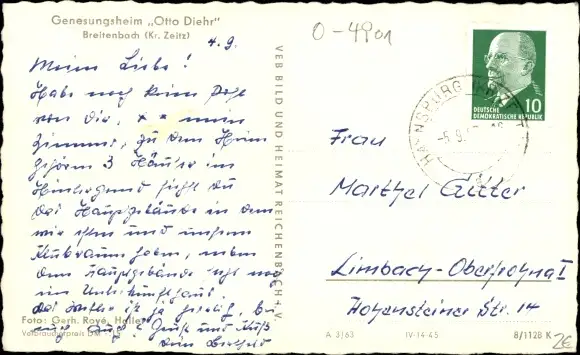 Genesungsheim „Otto Diehr"
Breitenbach (Kr. Zeitz)
4.9.
Meine Liebe!
Habe noch keine Post
von Dir, x x mein
Zimmer, zu dem Heim
gehören 3 Häuser im
Hintergrund siehst du
das Hauptgebäude in dem
wir essen und unsere
Klubraum haben, neben
dem Hauptgebäude
ein Unterkunftshaus.
Das Wetter ist ja
auch Gruß und Kuß
Dein
Foto: Gerh. Royé, Halle
Verbraucherpreis DM
VEB BILD UND HEIMAT REICHENBACH i. V.
O-4901
HAYNSBURG
-5.9.
10
DEUTSCHE
DEMOKRATISCHE REPUBLIK
Frau
Marthel
Limbach-Oberfrohna I
Hohensteiner Str. 14
A 3/63
IV-14-45
8/1128 K
2€